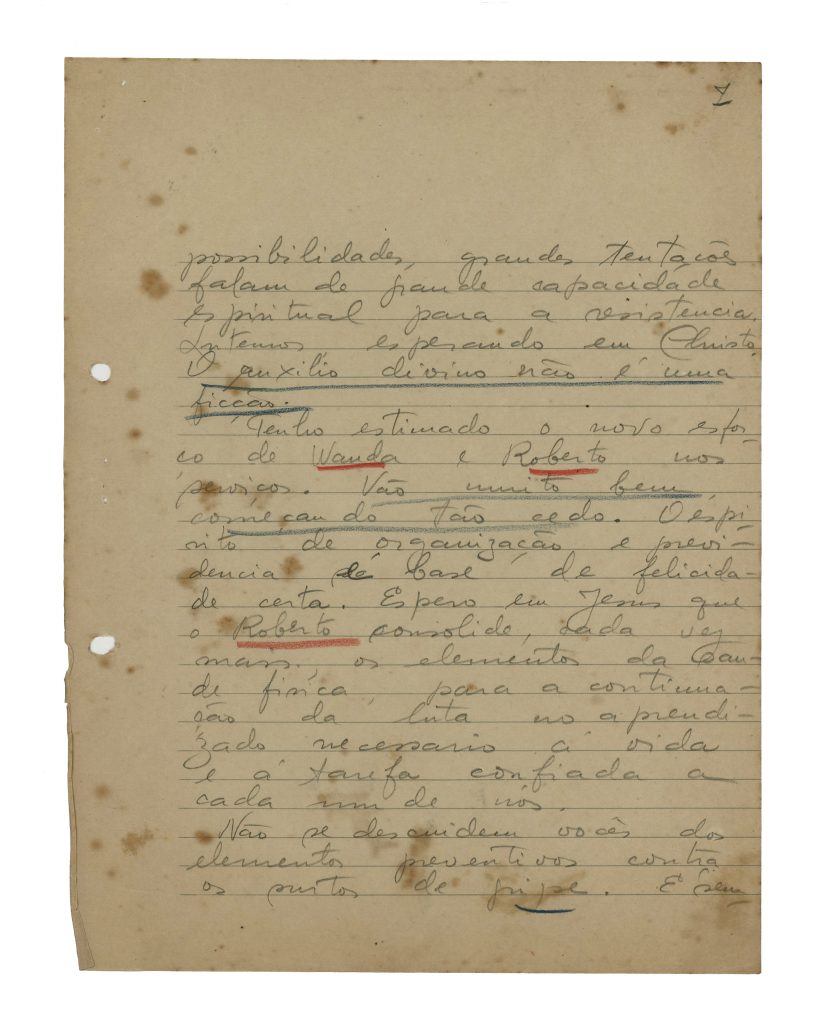 7
possibilidades, grandes tentações
falam de grande capacidade
espiritual para a resistencia.
Lutemos, esperando em Christo.
O auxilio divino não é uma
ficção.
Tenho estimado o novo esfor-
ço de Wanda e Roberto nos
serviços. Vão muito bem,
começando tão cedo. O espi-
rito de organização e previ-
dencia é base de felicida-
de certa. Espero em Jesus que
o Roberto consolide, cada vez
mais, os elementos da sau-
de fisica, para a continua-
ção da luta no aprendi-
zado necessario á vida
e á tarefa confiada a
cada um de nós.
Não se descuidem vocês dos
elementos preventivos contra
os surtos de gripe. É sem-